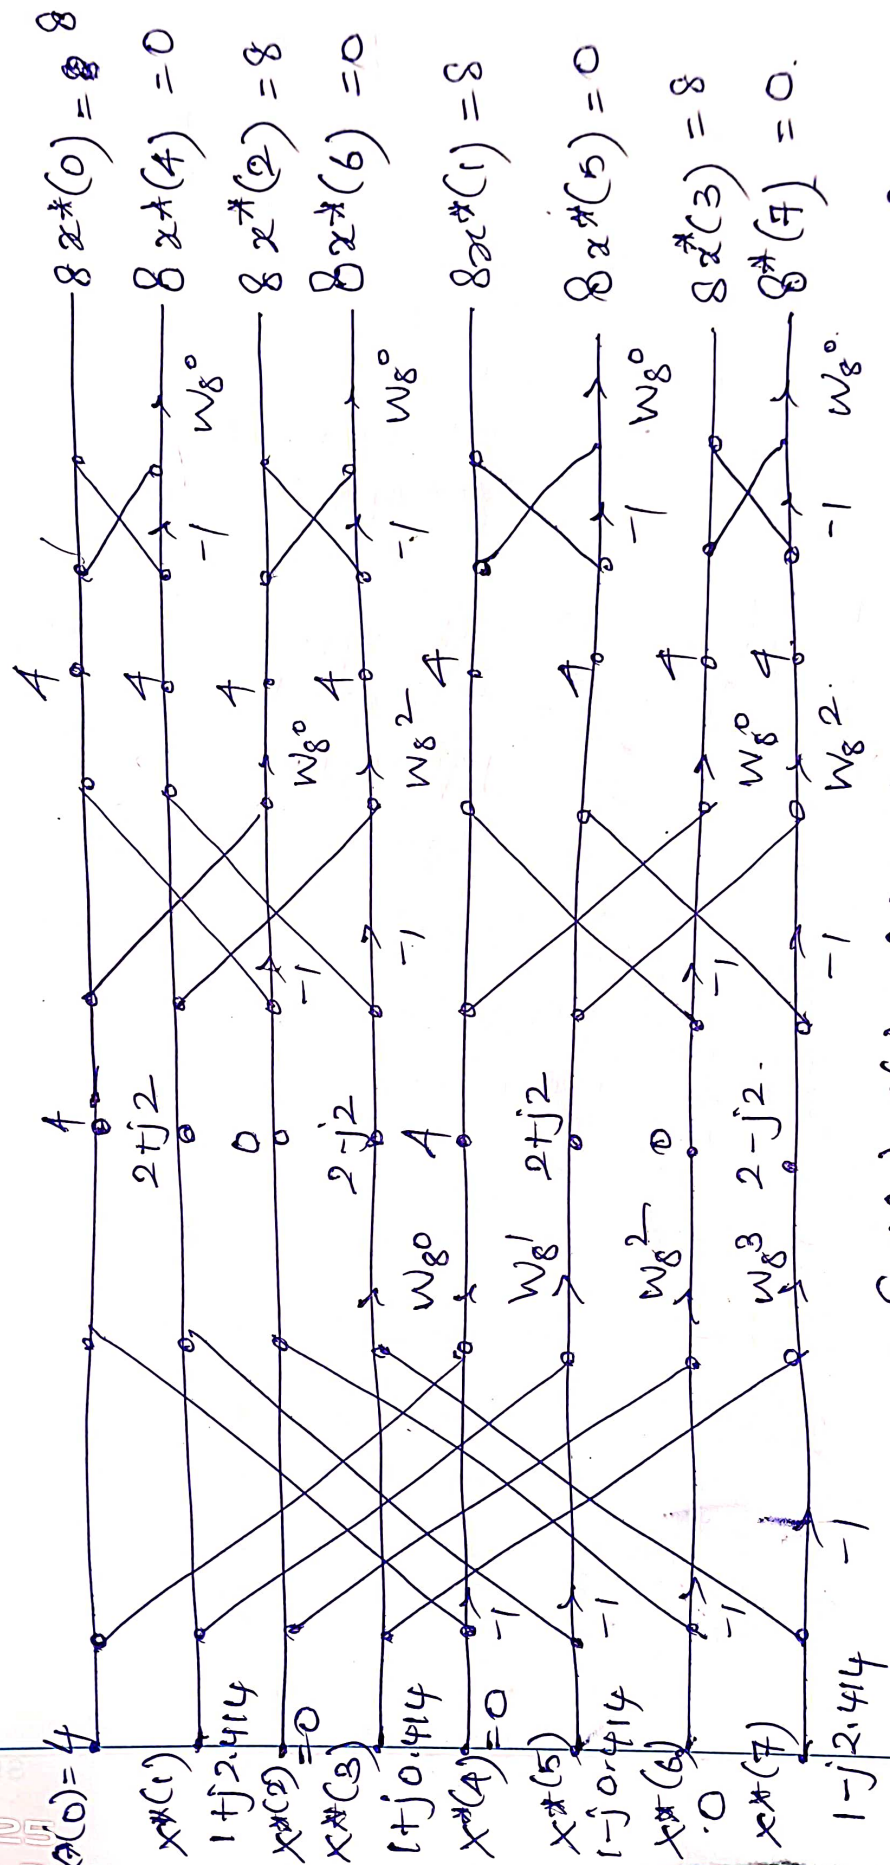 x*(0) = 4
x*(1)
1+j2.414
x*(2)
=0
x*(3)
1+j0.414
x*(4)=0
x*(5)
1-j0.414
x*(6)
.0
x*(7)
1-j2.414
-1
-1
-1
-1
W8^0
W8^1
W8^2
W8^3
4
2+j2
0
2-j2
4
2+j2
0
2-j2.
-1
-1
-1
-1
W8^0
W8^2
W8^0
W8^2.
4
4
4
4
4
4
4
4
-1
-1
-1
-1
W8^0
W8^0
W8^0
W8^0.
8x*(0) = 8
8x*(4) =0
8x*(2) =8
8x*(6) =0
8x*(1) =8
8x*(5) =0
8x*(3) =8
8*(7) =0.